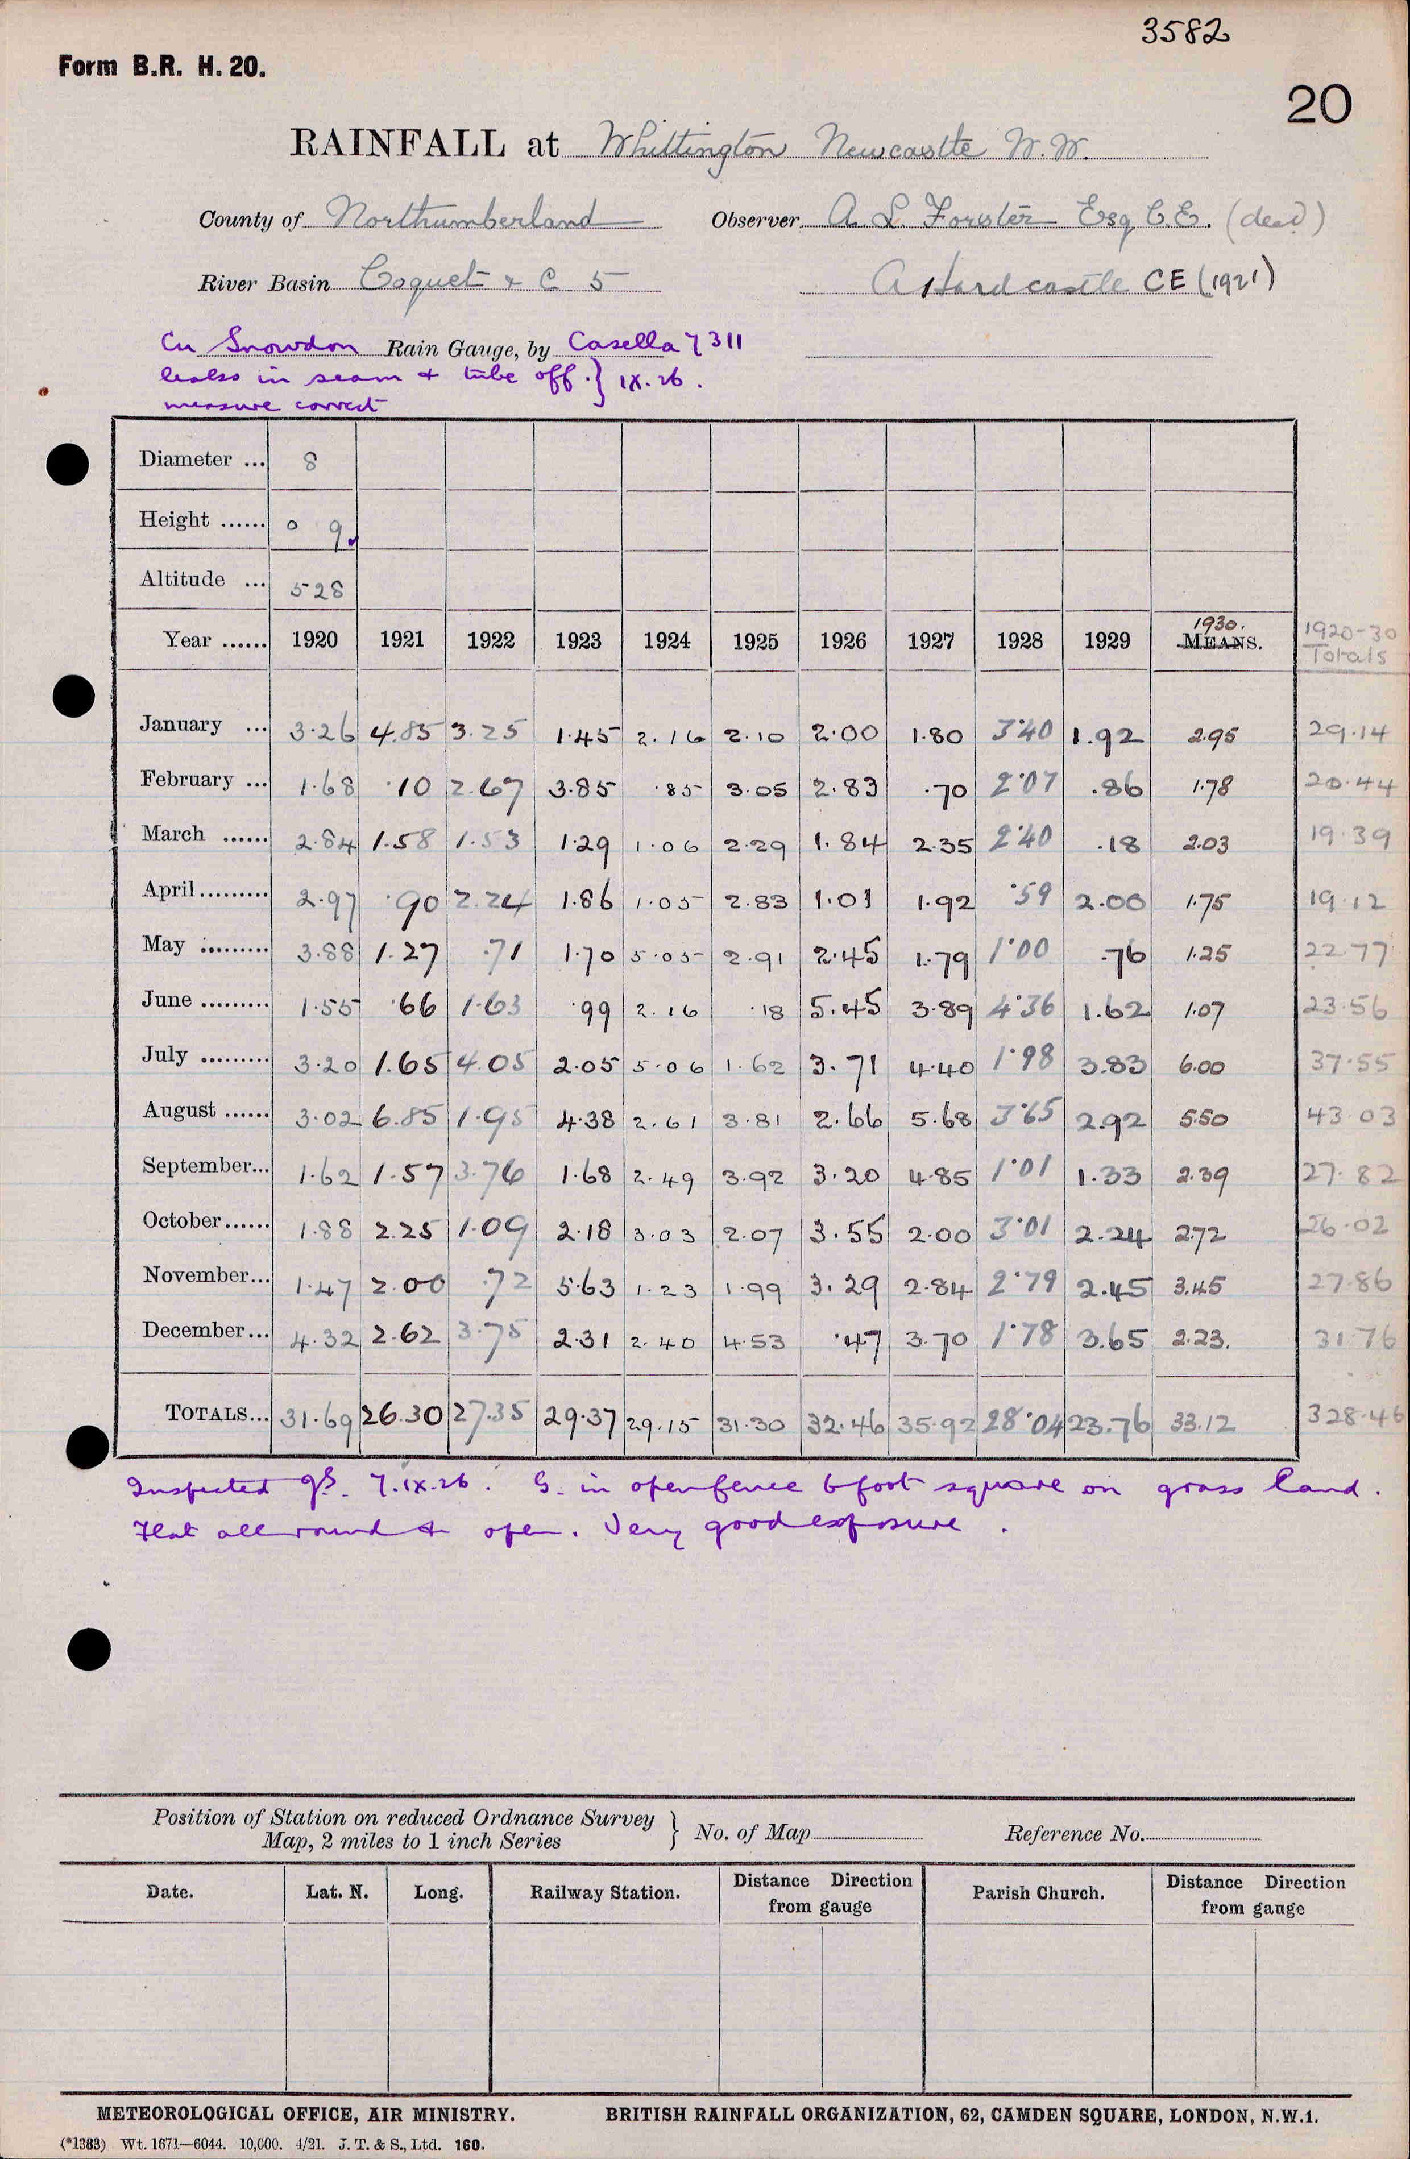 3582
Form B.R. H. 20.
20
RAINFALL at Whittington Newcastle W.W.
County of Northumberland Observer A. L. Forster Esq C.E. (dead)
River Basin Coquet & C 5 A Hardcastle CE (1921)
Cu Snowdon Rain Gauge, by Casella 7311
leaks in seam & tube off. } IX.26.
measure correct
Diameter ... 8
Height ...... 0 9
Altitude ... 528
Year ...... 1920 1921 1922 1923 1924 1925 1926 1927 1928 1929 1930. MEANS. 1920-30 Totals
January ... 3.26 4.85 3.25 1.45 2.16 2.10 2.00 1.80 3.40 1.92 2.95 29.14
February ... 1.68 .10 2.67 3.85 .85 3.05 2.83 .70 2.07 .86 1.78 20.44
March ...... 2.84 1.58 1.53 1.29 1.06 2.29 1.84 2.35 2.40 .18 2.03 19.39
April ......... 2.97 .90 2.24 1.86 1.05 2.83 1.01 1.92 .59 2.00 1.75 19.12
May ......... 3.88 1.27 .71 1.70 5.05 2.91 2.45 1.79 1.00 .76 1.25 22.77
June ......... 1.55 .66 1.63 .99 2.16 .18 5.45 3.89 4.36 1.62 1.07 23.56
July ......... 3.20 1.65 4.05 2.05 5.06 1.62 3.71 4.40 1.98 3.83 6.00 37.55
August ...... 3.02 6.85 1.95 4.38 2.61 3.81 2.66 5.68 3.65 2.92 5.50 43.03
September... 1.62 1.57 3.76 1.68 2.49 3.92 3.20 4.85 1.01 1.33 2.39 27.82
October...... 1.88 2.25 1.09 2.18 3.03 2.07 3.55 2.00 3.01 2.24 2.72 26.02
November... 1.47 2.00 .72 5.63 1.23 1.99 3.29 2.84 2.79 2.45 3.45 27.86
December... 4.32 2.62 3.75 2.31 2.40 4.53 .47 3.70 1.78 3.65 2.23. 31.76
TOTALS... 31.69 26.30 27.35 29.37 29.15 31.30 32.46 35.92 28.04 23.76 33.12 328.46
Inspected gS. 7.IX.26. G. in open fence 6 foot square on grass land.
Flat all round & open. Very good exposure.
Position of Station on reduced Ordnance Survey
Map, 2 miles to 1 inch Series } No. of Map Reference No.
Date. Lat. N. Long. Railway Station. Distance Direction from gauge Parish Church. Distance Direction from gauge
METEOROLOGICAL OFFICE, AIR MINISTRY. BRITISH RAINFALL ORGANIZATION, 62, CAMDEN SQUARE, LONDON, N.W.1.
(*1383) Wt. 1671—6044. 10,000. 4/21. J. T. & S., Ltd. 160.